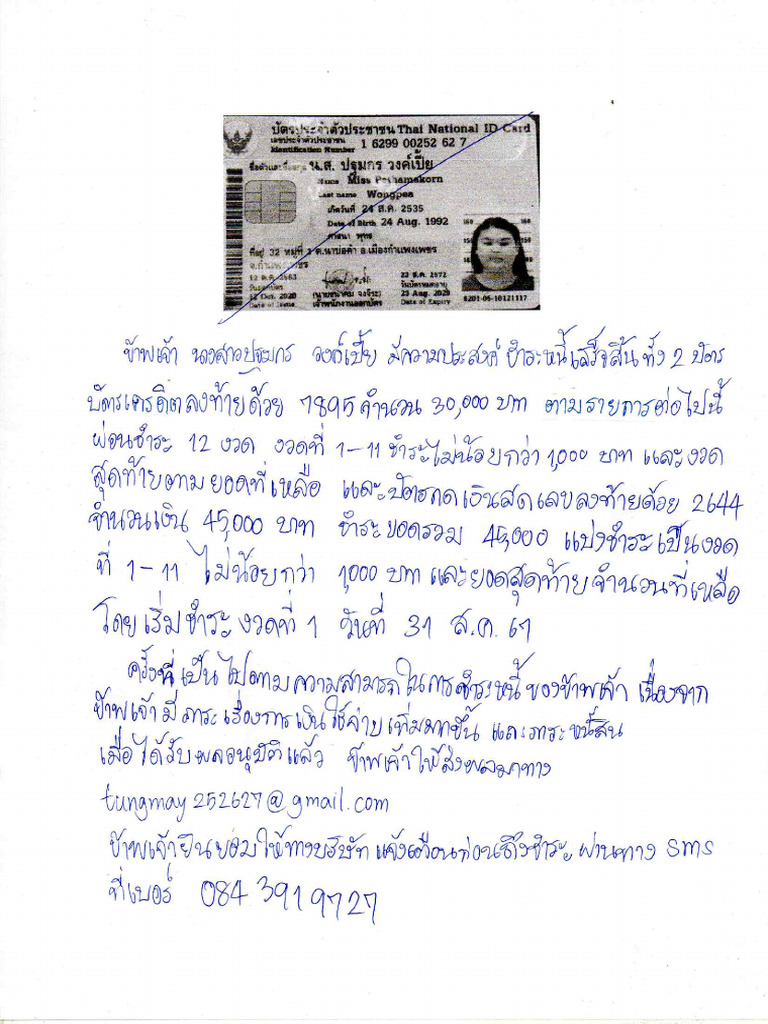 บัตรประจำตัวประชาชน Thai National ID Card
เลขประจำตัวประชาชน
Identification Number 1 6299 00252 62 7
น.ส. ปฐมกร วงค์เปี้ย
Name Miss Pathamakorn
Last name Wongpea
เกิดวันที่ 24 ส.ค. 2535
Date of Birth 24 Aug. 1992
ศาสนา พุทธ
ที่อยู่ 32 หมู่ที่ ต.นาบ่อคำ อ.เมืองกำแพงเพชร
จ.กำแพงเพชร
12 ต.ค. 2563
วันออกบัตร
12 Oct. 2020
Date of Issue
เจ้าพนักงานออกบัตร
23 ส.ค. 2572
วันบัตรหมดอายุ
23 Aug. 2029
Date of Expiry
6201-06-10121117
ข้าพเจ้า นางสาวปฐมกร วงค์เปี้ย มีความประสงค์ ชำระหนี้เสร็จสิ้น ทั้ง 2 บัตร
บัตรเครดิตลงท้ายด้วย 7895 จำนวน 30,000 บาท ตามรายการต่อไปนี้
ผ่อนชำระ 12 งวด งวดที่ 1-11 ชำระไม่น้อยกว่า 1,000 บาท และงวด
สุดท้ายตามยอดที่เหลือ และบัตรกดเงินสดเลขลงท้ายด้วย 2644
จำนวนเงิน 45,000 บาท ชำระยอดรวม 45,000 แบ่งชำระเป็นงวด
ที่ 1-11 ไม่น้อยกว่า 1,000 บาท และยอดสุดท้ายจำนวนที่เหลือ
โดยเริ่มชำระงวดที่ 1 วันที่ 31 ส.ค. 67
ครั้งที่เป็นไปตามความสามารถในการชำระหนี้ของข้าพเจ้า เนื่องจาก
ข้าพเจ้ามีภาระเรื่องการเงินใช้จ่ายเพิ่มมากขึ้น และภาระหนี้สิน
เมื่อได้รับผลอนุมัติแล้ว ข้าพเจ้าให้ส่งผลมาทาง
tungmay252627@gmail.com
ข้าพเจ้ายินยอมให้ทางบริษัท แจ้งเตือนก่อนถึงชำระ ผ่านทาง SMS
ที่เบอร์ 084 3919727